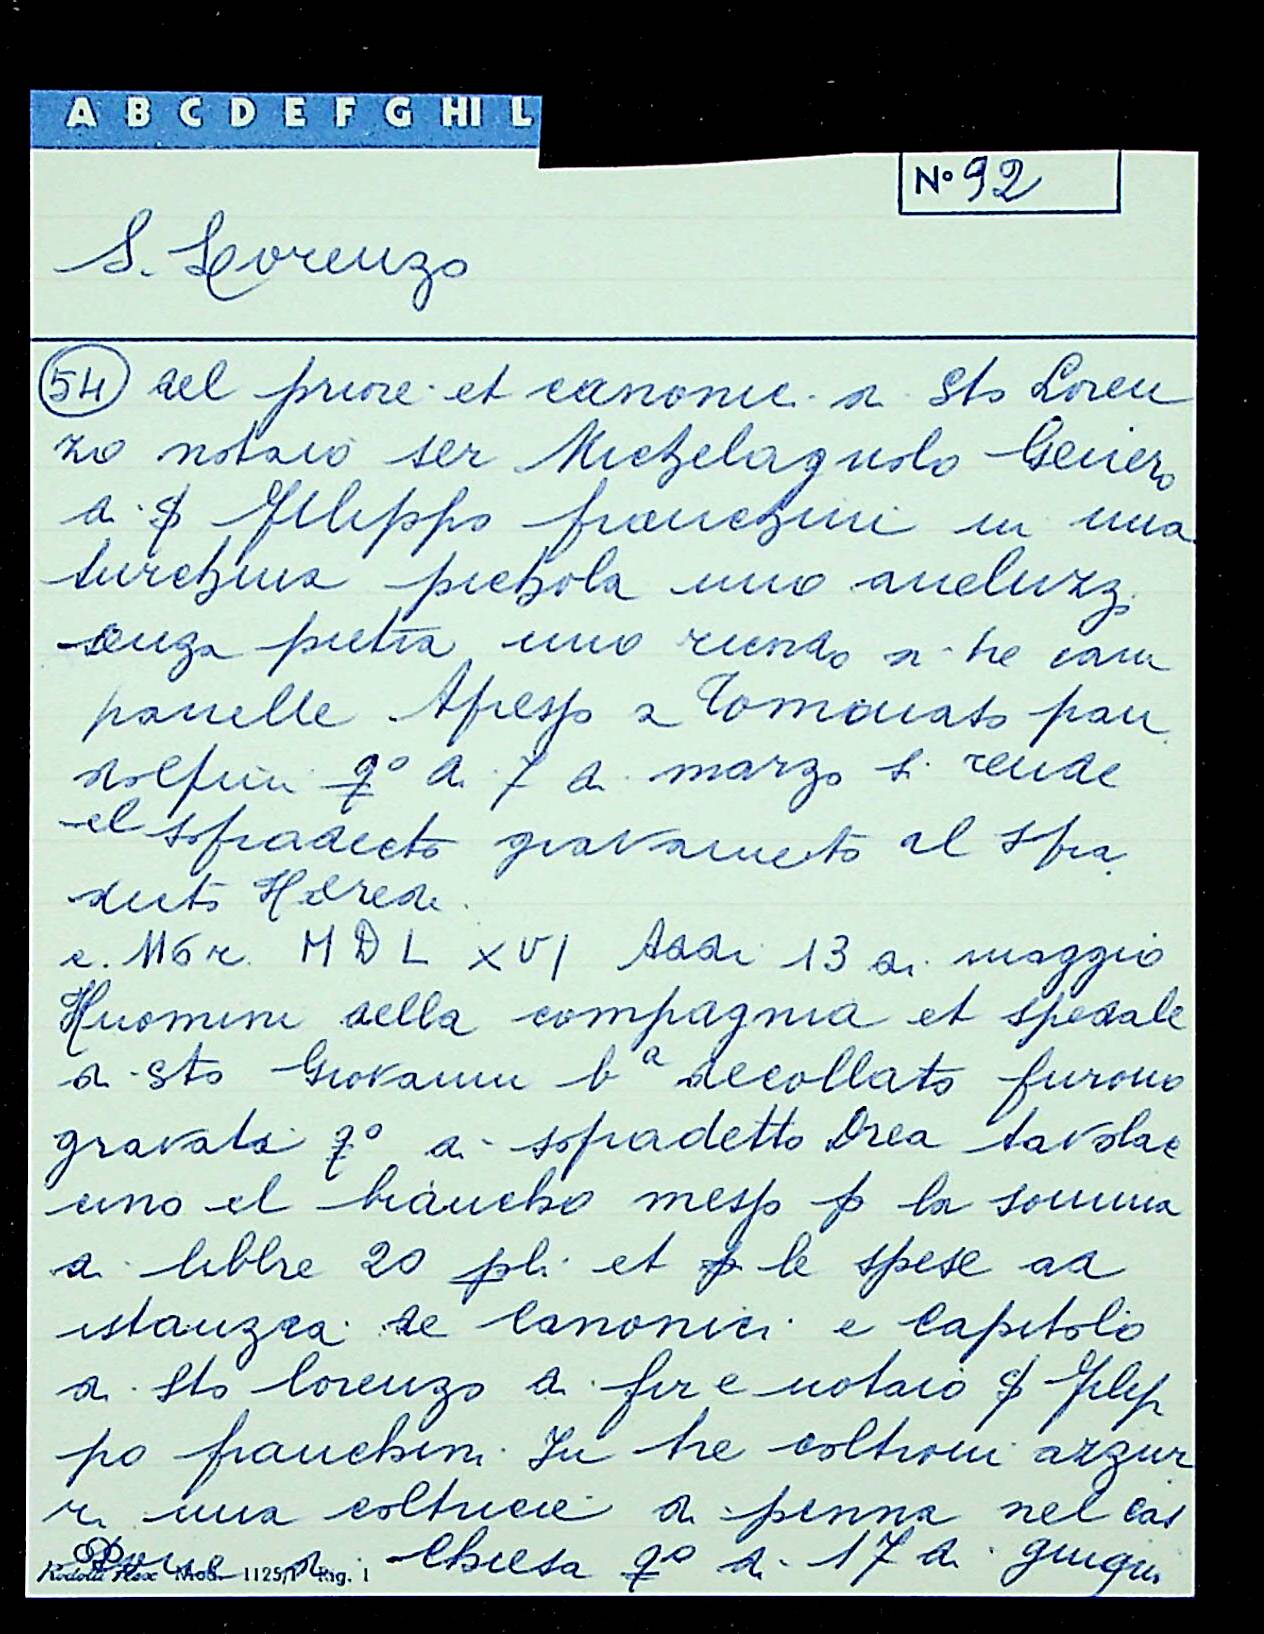 A B C D E F G HI L
N° 92
S. Lorenzo
54 del priore et canonic. di Sto Loren
zo notaio ser Michelagnolo
di Filippo franchini in una
turchina pichola uno aneluzz.
senza pietra uno di tre cam
panelle Apresso a Tomonato pan
dolfini q° di 7 di marzo si rende
el sopradecto gravamento al sopra
decto Herede.
c. 116 r. MDLXVI Addi 13 di maggio
Huomini della compagnia et spedale
di Sto Giovanni ba decollato furono
gravati q° di sopradetto Drea tavolac
cino el biancho messo p la somma
di libbre 20 pli et p le spese ad
istanzia de Canonici e Capitolo
di Sto lorenzo di fire notaio Filip
po franchini In tre coltroni azzur
ri una coltricie di penna nel cas
sone di Chiesa q° di 17 di giugn.
Mod. 1125/1 Rig. 1